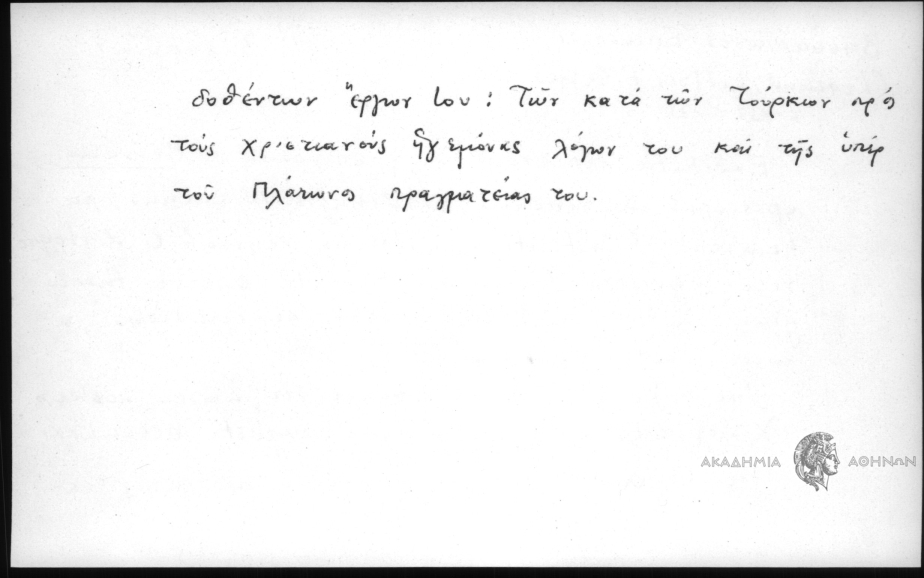 δοθέντων ἔργων Ιου: Τῶν κατά τῶν Τούρκων πρός
τούς χριστιανούς ἡγεμόνας λόγων του καί τῆς ὑπέρ
τοῦ Πλάτωνος πραγματείας του.
ΑΚΑΔΗΜΙΑ ΑΘΗΝΩΝ